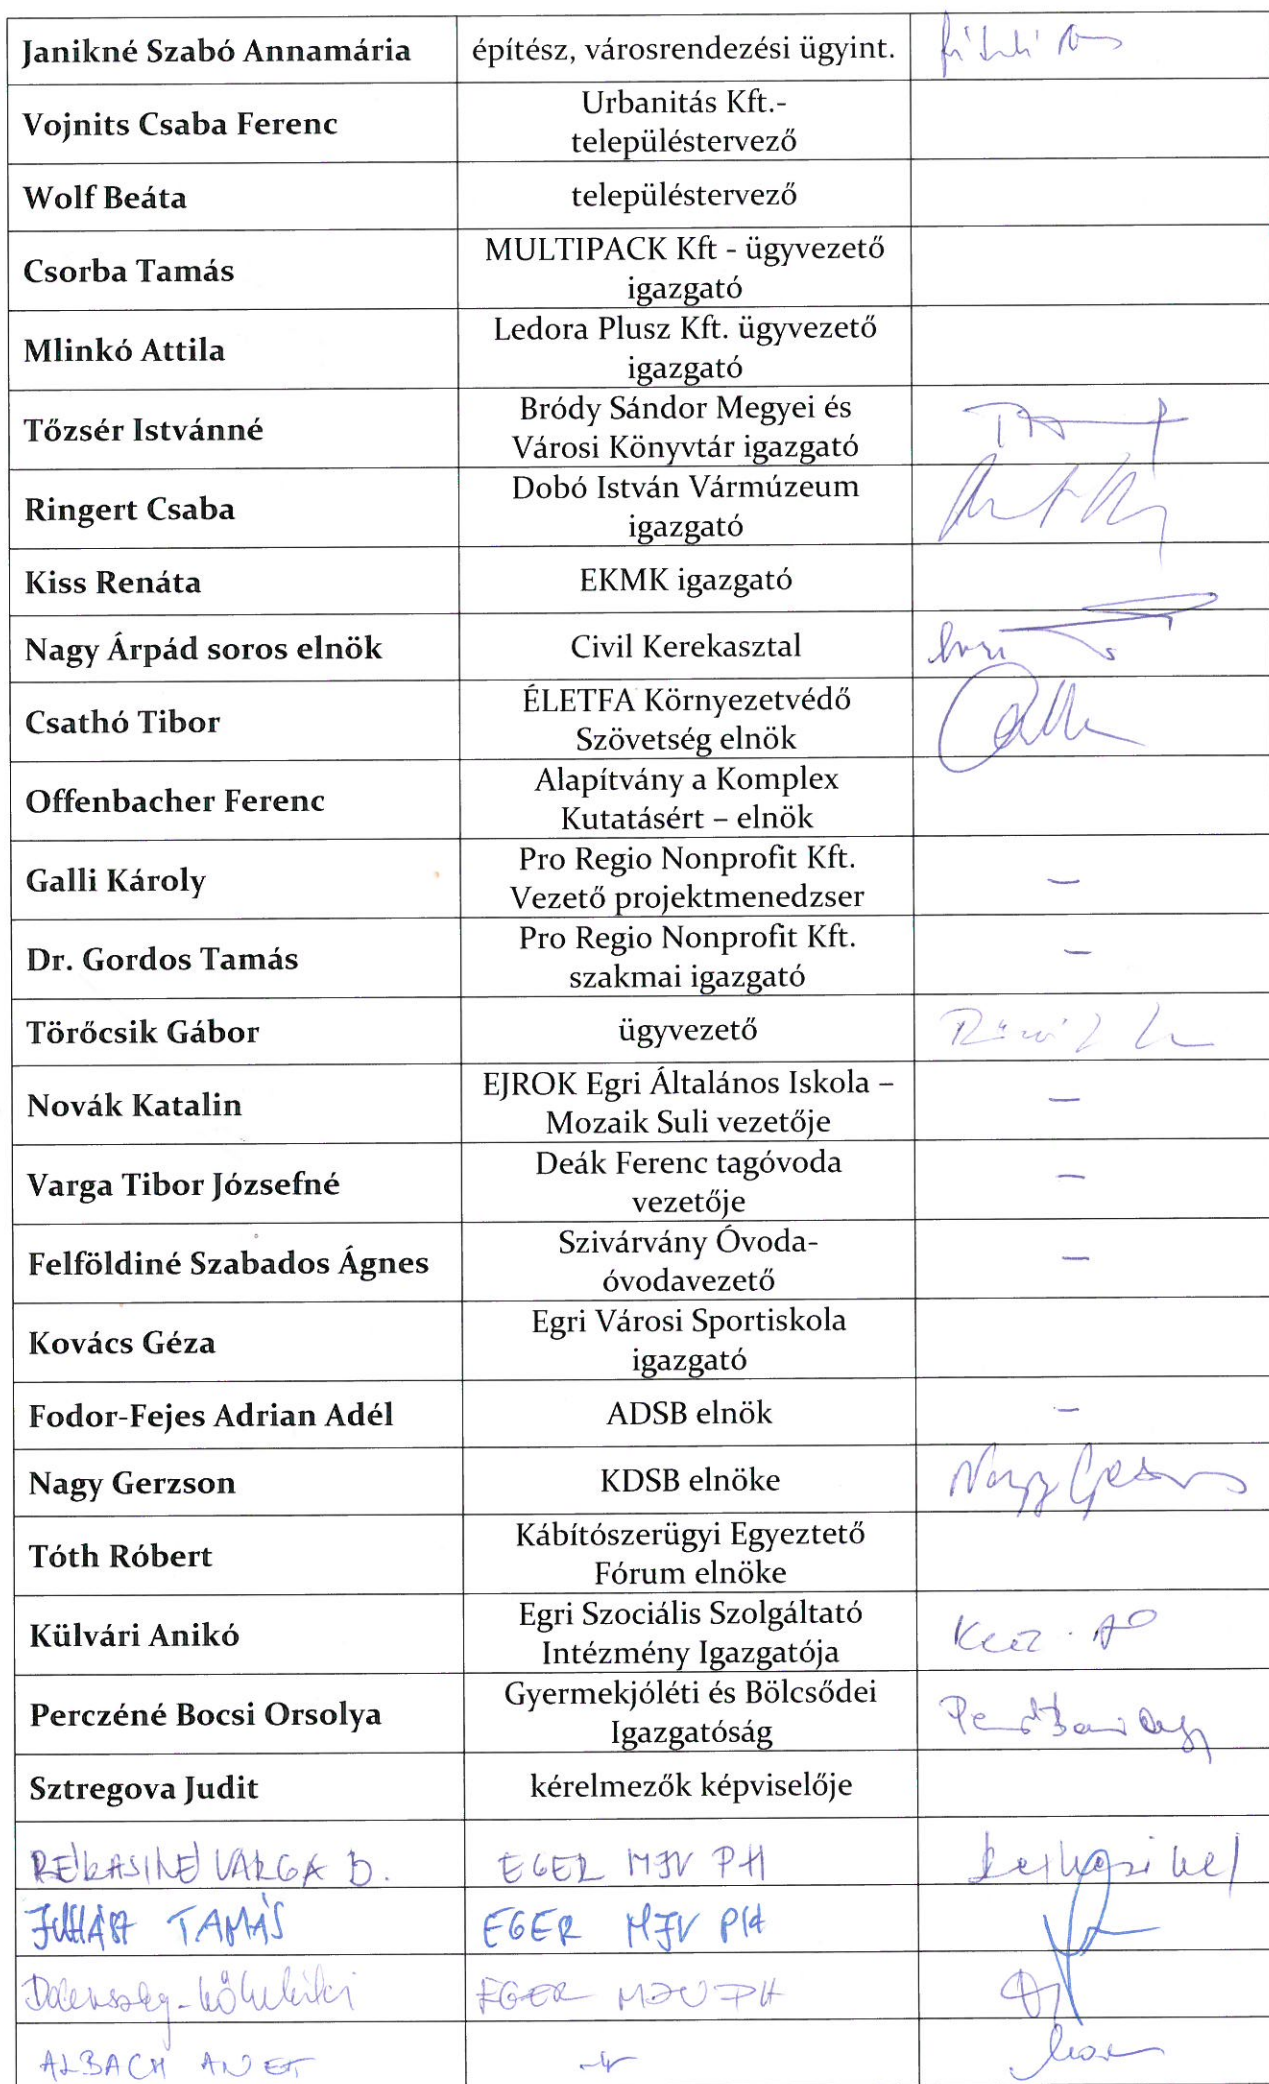 Janikné Szabó Annamária építész, városrendezési ügyint.
Vojnits Csaba Ferenc Urbanitás Kft.-
településtervező
Wolf Beáta településtervező
Csorba Tamás MULTIPACK Kft - ügyvezető
igazgató
Mlinkó Attila Ledora Plusz Kft. ügyvezető
igazgató
Tőzsér Istvánné Bródy Sándor Megyei és
Városi Könyvtár igazgató
Ringert Csaba Dobó István Vármúzeum
igazgató
Kiss Renáta EKMK igazgató
Nagy Árpád soros elnök Civil Kerekasztal
Csathó Tibor ÉLETFA Környezetvédő
Szövetség elnök
Offenbacher Ferenc Alapítvány a Komplex
Kutatásért – elnök
Galli Károly Pro Regio Nonprofit Kft. –
Vezető projektmenedzser
Dr. Gordos Tamás Pro Regio Nonprofit Kft. –
szakmai igazgató
Törőcsik Gábor ügyvezető
Novák Katalin EJROK Egri Általános Iskola – –
Mozaik Suli vezetője
Varga Tibor Józsefné Deák Ferenc tagóvoda –
vezetője
Felföldiné Szabados Ágnes Szivárvány Óvoda- –
óvodavezető
Kovács Géza Egri Városi Sportiskola
igazgató
Fodor-Fejes Adrian Adél ADSB elnök –
Nagy Gerzson KDSB elnöke Nagy
Tóth Róbert Kábítószerügyi Egyeztető
Fórum elnöke
Külvári Anikó Egri Szociális Szolgáltató
Intézmény Igazgatója
Perczéné Bocsi Orsolya Gyermekjóléti és Bölcsődei
Igazgatóság
Sztregova Judit kérelmezők képviselője
RÉKASINÉ VARGA D. EGER MJV PH
JUHÁSZ TAMÁS EGER MJV PH
EGER MJV PH
ALBACH ANETT